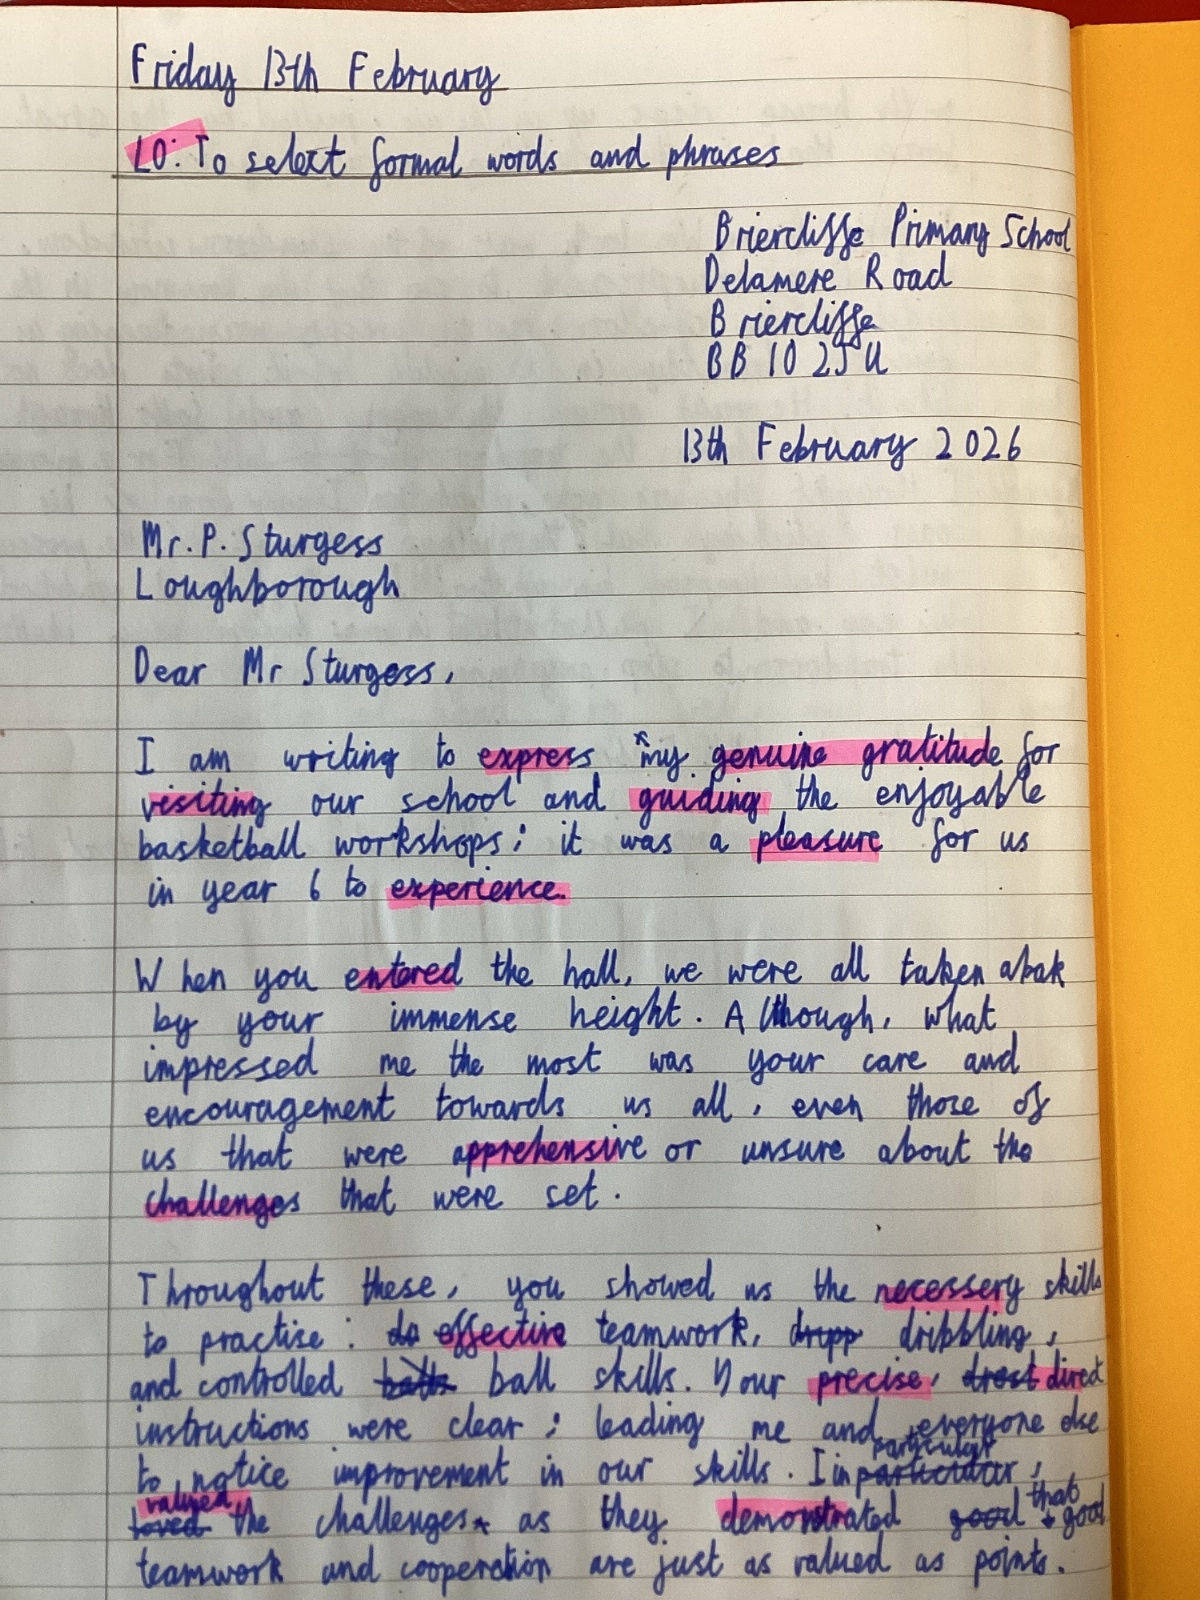 Friday 13th February
LO: To select formal words and phrases
Briercliffe Primary School
Delamere Road
Briercliffe
BB10 2JU
13th February 2026
Mr. P. Sturgess
Loughborough
Dear Mr Sturgess,
I am writing to express my genuine gratitude for
visiting our school and guiding the enjoyable
basketball workshops; it was a pleasure for us
in year 6 to experience.
When you entered the hall, we were all taken abak
by your immense height. Although, what
impressed me the most was your care and
encouragement towards us all, even those of
us that were apprehensive or unsure about the
challenges that were set.
Throughout these, you showed us the necessery skills
to practise: do effective teamwork, dripp dribbling,
and controlled balls ball skills. Your precise, direct
instructions were clear; leading me and everyone else
to notice improvement in our skills. I in particular,
loved valued the challenges as they demonstrated good that good
teamwork and cooperation are just as valued as points.